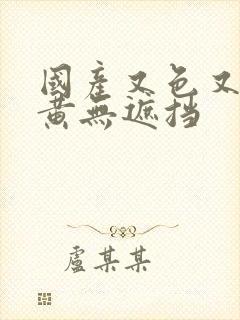 國產又色又
黃無遮挡
盧某某